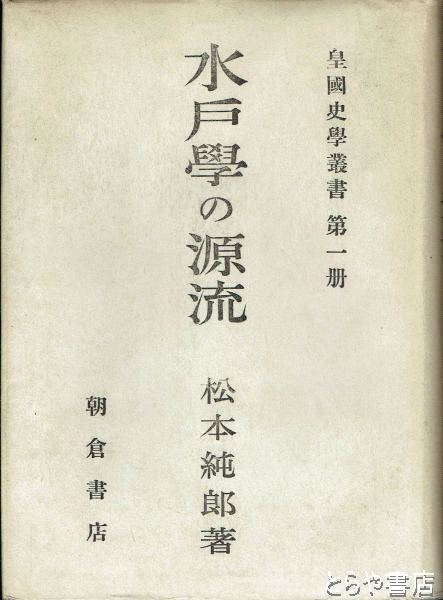 皇國史學叢書 第一册
水戸學の源流
松本純郎著
朝倉書店
とらや書店